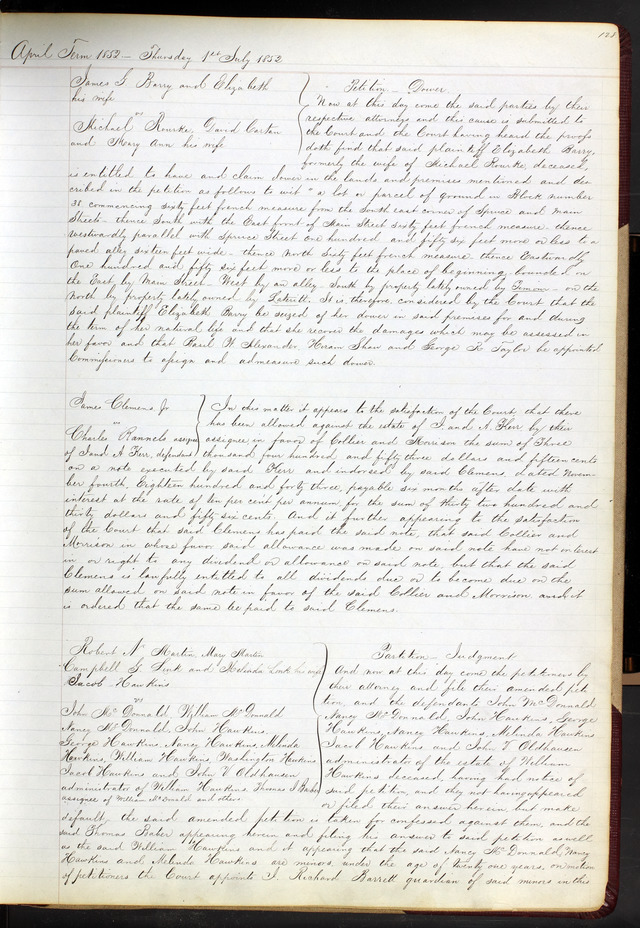 123
April Term 1852 — Thursday 1st July 1852
James G Barry and Elizabeth
his wife
vs
Michael Rourke, David Cartan
and Mary Ann his wife
Petition — Dower
Now at this day come the said parties by their
respective attorneys and this cause is submitted to
the Court and the Court having heard the proofs
doth find that said plaintiff Elizabeth Barry,
formerly the wife of Michael Rourke, deceased,
is entitled to have and claim dower in the lands and premises mentioned and des
cribed in the petition as follows to wit "a lot or parcel of ground in Block number
38. commencing sixty feet french measure from the South east corner of Spruce and Main
Streets — thence South with the East front of Main Street sixty feet french measure. thence
westwardly parallel with Spruce Street one hundred and fifty six feet more or less to a
paved alley sixteen feet wide — thence North sixty feet french measure thence Eastwardly
One hundred and fifty six feet more or less to the place of beginning, bounded on
the East by Main Street — West by an alley — South by property lately owned by — on the
North by property lately owned by It is, therefore, considered by the Court that the
said plaintiff Elizabeth Barry be seized of her dower in said premises for and during
the term of her natural life and that she recover the damages which may be assessed in
her favor and that Basil W Alexander Hiram Shaw and George R Taylor be appointed
Commissioners to assign and admeasure such dower.
James Clemens Jr
vs
Charles Rannels assignee
of J and A Kerr, defendant
In this matter it appears to the satisfaction of the Court, that there
has been allowed against the estate of J. and A. Kerr by their
assignee in favor of Collier and Morrison the sum of Three
thousand four hundred and fifty three dollars and fifteen cents
on a note executed by said Kerr and indorsed by said Clemens, dated Novem-
ber fourth, Eighteen hundred and forty three, payable six months after date with
interest at the rate of ten per cent per annum, for the sum of thirty two hundred and
thirty dollars and fifty six cents. And it further appearing to the satisfaction
of the Court that said Clemens has paid the said note, that said Collier and
Morrison in whose favor said allowance was made on said note have not interest
in or right to any dividend or allowance on said note, but that the said
Clemens is lawfully entitled to all dividends due or to become due on the
sum allowed on said note in favor of the said Collier and Morrison and it
is ordered that the same be paid to said Clemens.
Robert N Martin Mary Martin
Campbell G Link and Belinda Link his wife
Jacob Hawkins
vs
John McDonnald William McDonald
Nancy McDonnald, John Hawkins,
George Hawkins, Nancy Hawkins, Melinda
Hawkins, William Hawkins, Washington Hawkins
Jacob Hawkins and John V Oldhausen
administrator of William Hawkins Thomas J Baker
assignee of William McDonald and others
Partition — Judgment
And now at this day come the petitioners by
their attorney and file their amended peti
tion, and the defendants John McDonnald,
Nancy McDonnald, John Hawkins, George
Hawkins, Nancy Hawkins, Melinda Hawkins
Jacob Hawkins and John V Oldhausen
administrator of the estate of William
Hawkins, deceased, having had notice of
said petition, and they not having appeared
or filed their answer herein, but make
default, the said amended petition is taken for confessed against them, and the
said Thomas Baker appearing herein and filing his answer to said petition as well
as the said William and it appearing that the said Nancy McDonnald, Nancy
Hawkins and Melinda Hawkins are minors, under the age of twenty one years, on motion
of petitioners the Court appoints J. Richard Barrett guardian of said minors in this